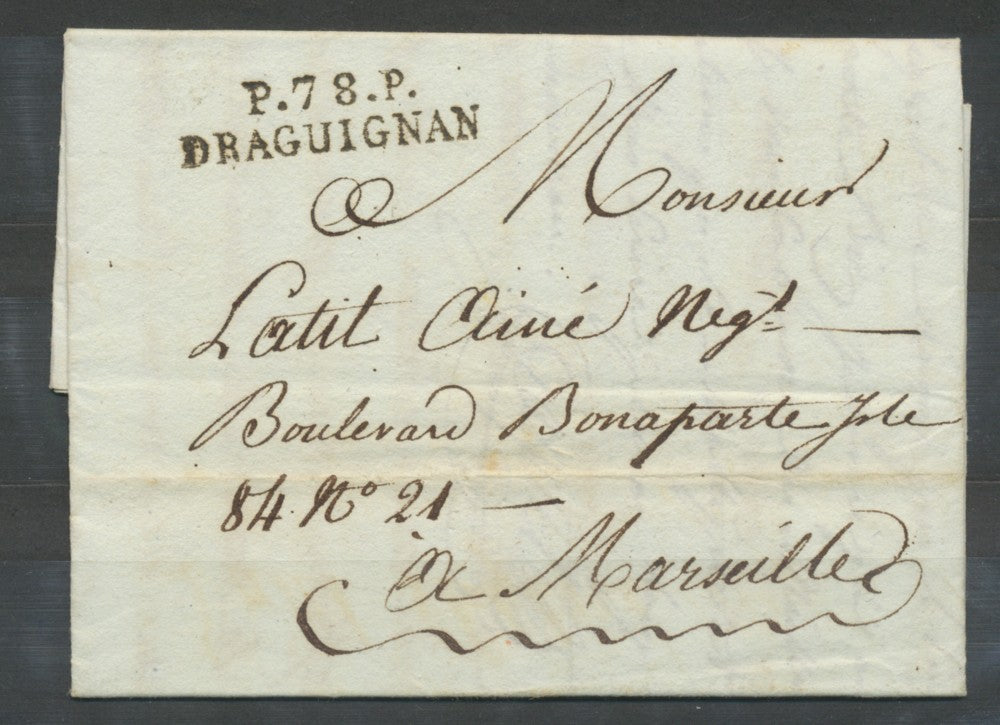 P.78.P.
DRAGUIGNAN
A Monsieur
Latil Ainé Negt.
Boulevard Bonaparte Isle
84 No 21
à Marseille